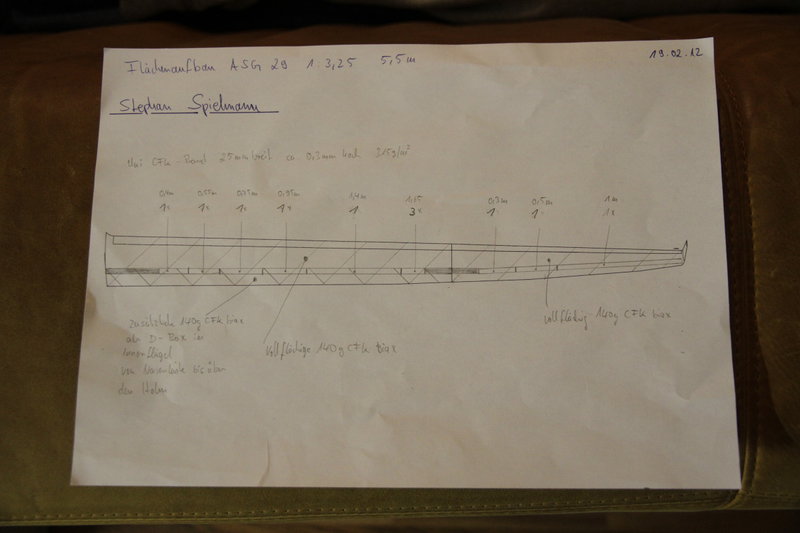 Flächenaufbau ASG 29 1:3,25 5,5m
19.02.12
Stephan Spielmann
Uni CFK-Band 25mm breit ca 0,3mm hoch 315g/m²
0,4m 0,55m 0,75m 0,95m 1,4m 1,65 0,3m 0,5m 1m
1x 1x 1x 1x 1 3x 1 1 1x
zusätzliche 140g CFK biax
als D-Box im
Innenflügel
von Nasenleiste bis über
den Holm
vollflächige 140g CFK biax
vollflächig 140g CFK biax